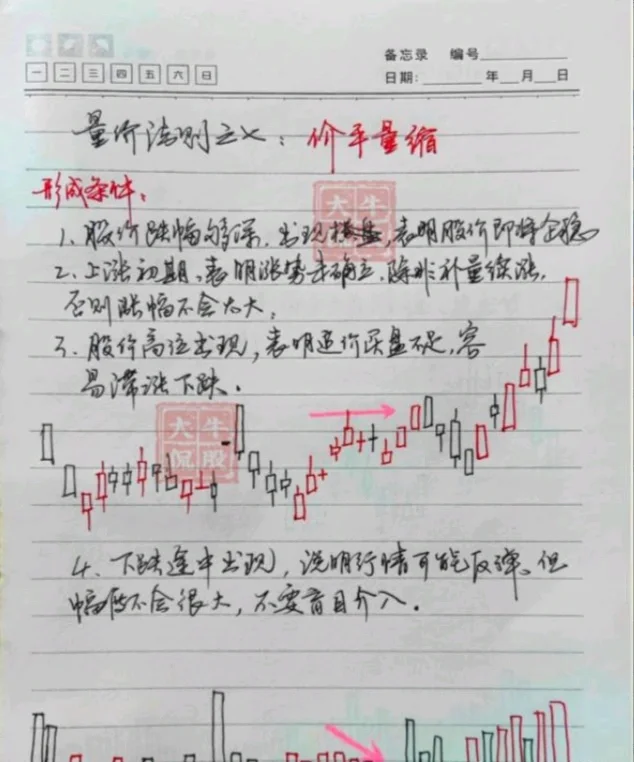 备忘录 编号
一 二 三 四 五 六 日
日期: 年 月 日
量价法则之七：价平量缩
形成条件：
1、股价跌幅够深，出现横盘，表明股价即将企稳
2、上涨初期，表明涨势未确立，除非补量续涨，
否则涨幅不会太大。
3、股价高位出现，表明追价买盘不足，容
易滞涨下跌。
大牛
侃股
大牛
4、下跌途中出现，说明行情可能反弹，但
幅度不会很大，不要盲目介入。